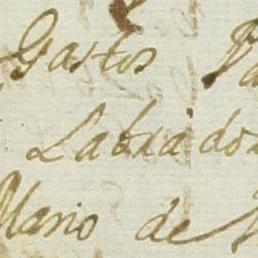 Gastos
Labrado
Mario de